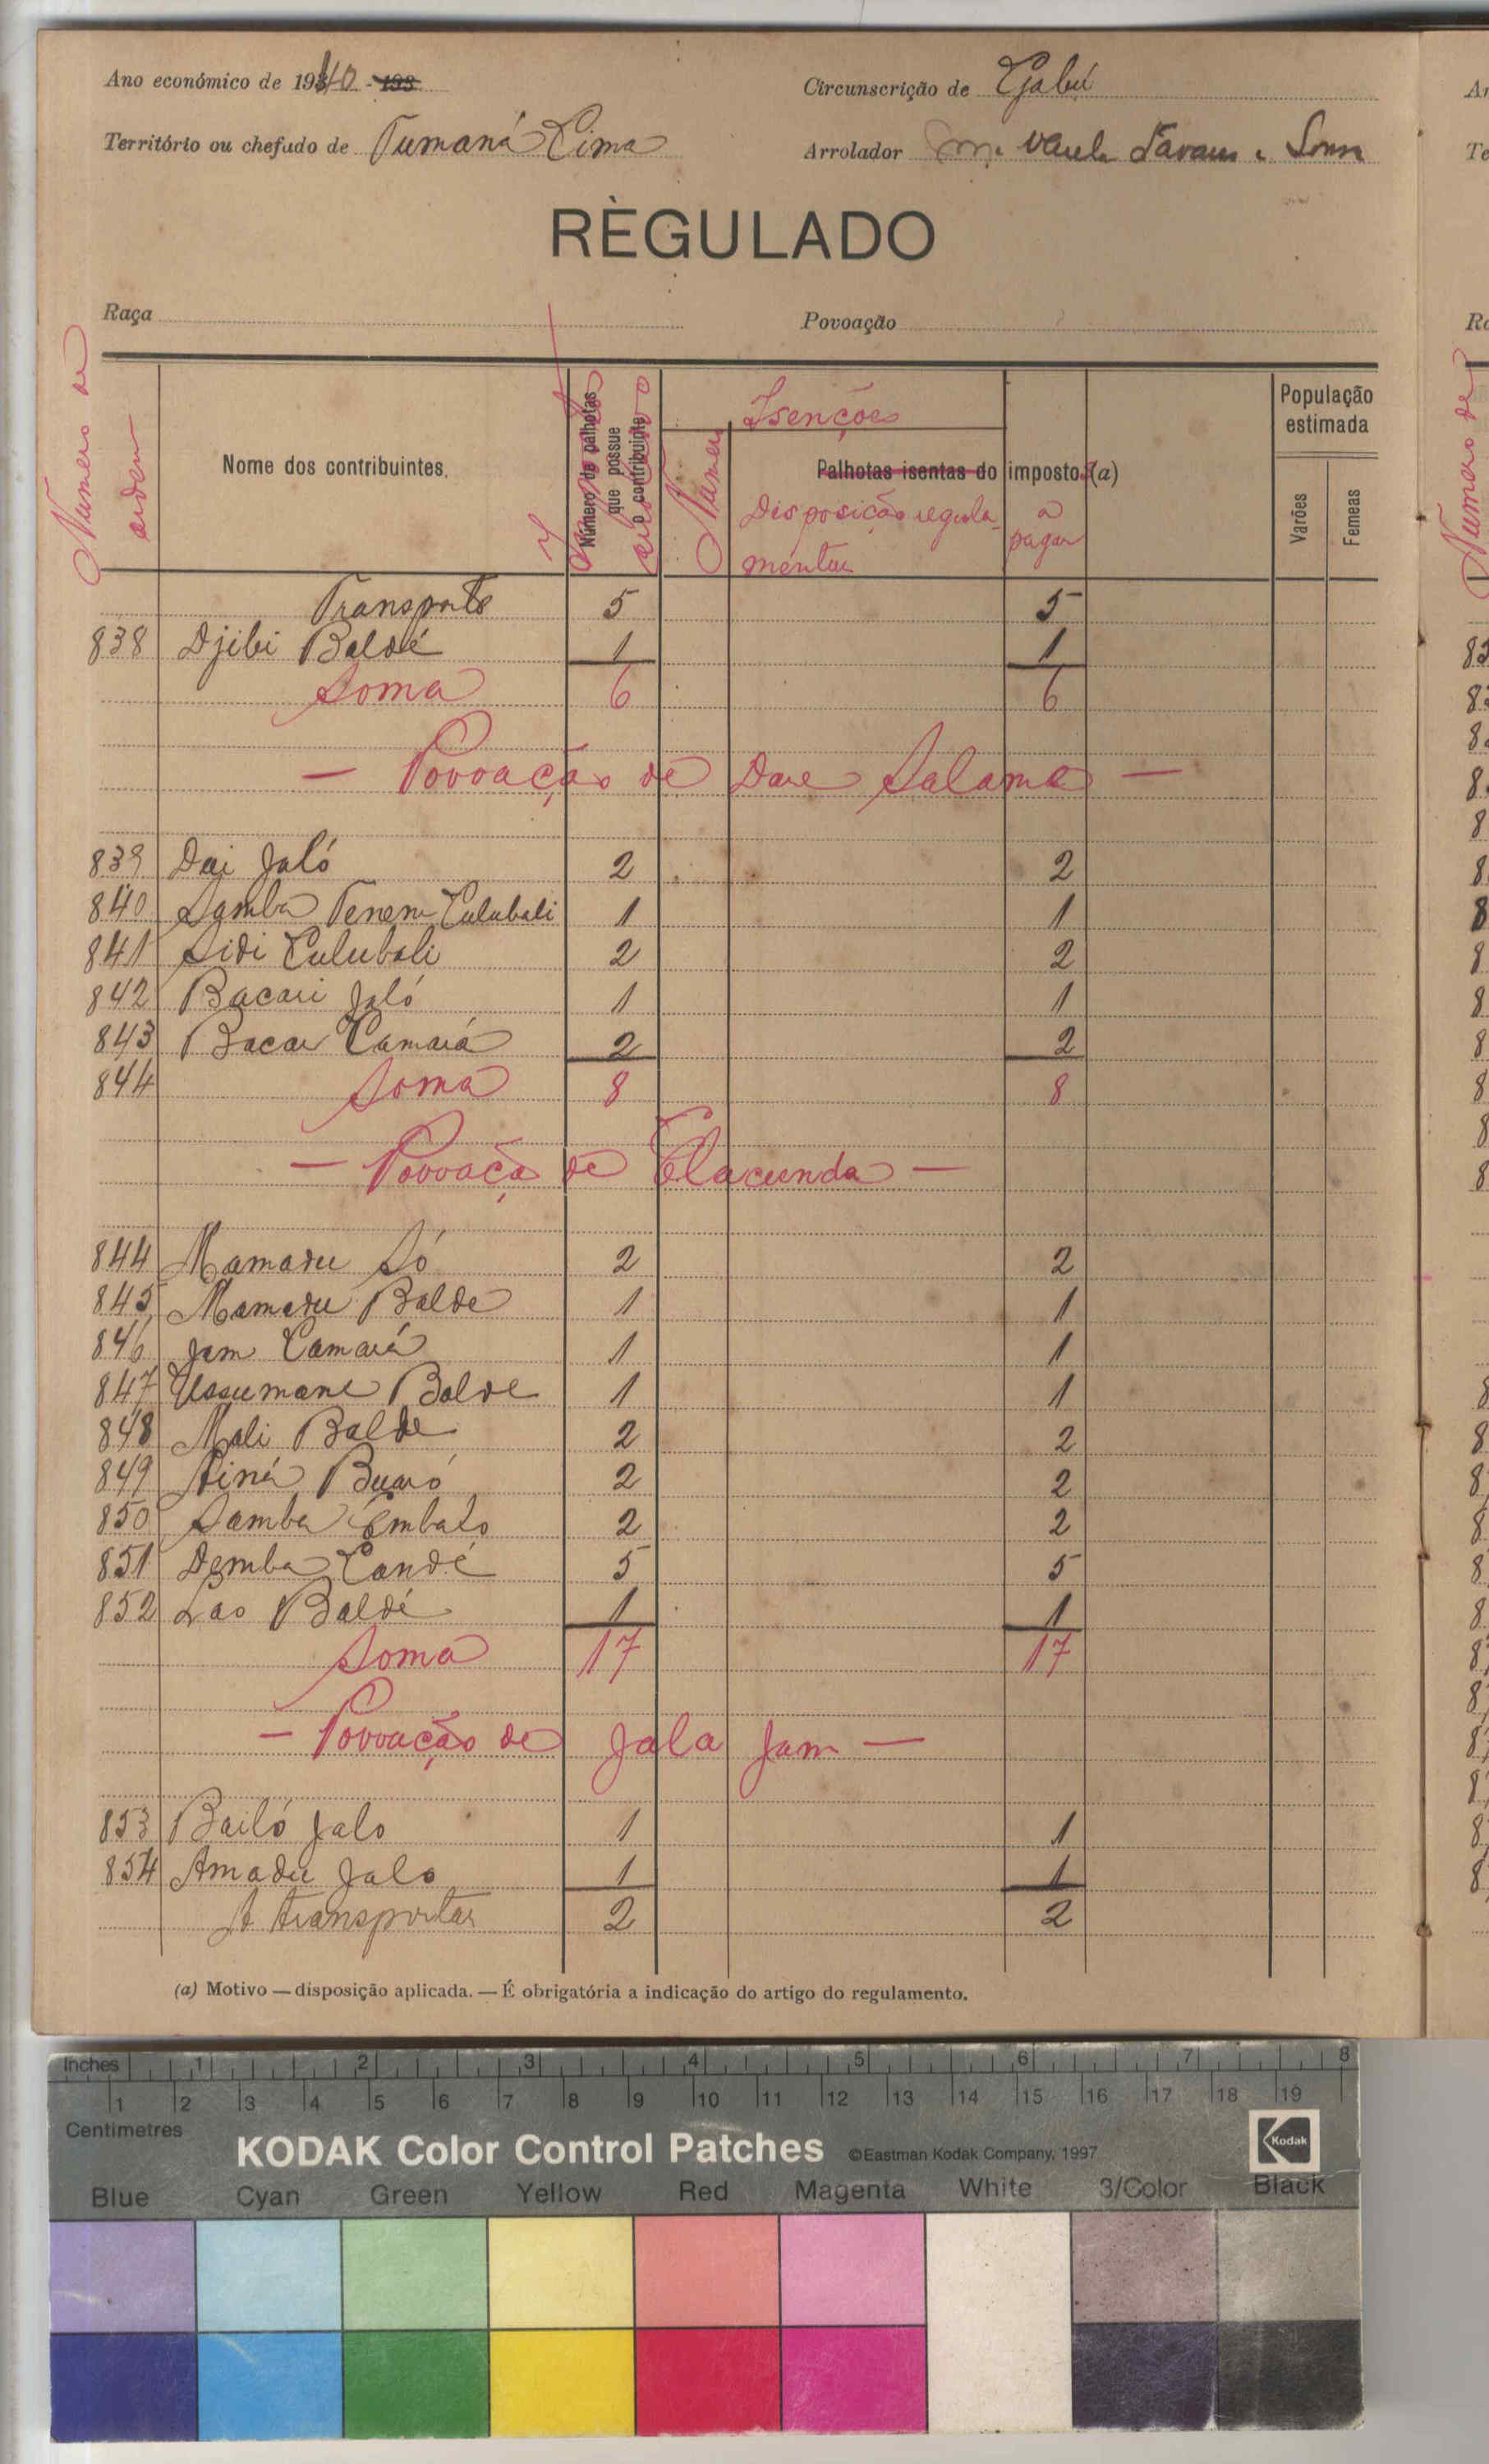 Ano económico de 1940 - 193
Circunscrição de Gabú
Território ou chefado de Tumaná Cima
Arrolador
RÈGULADO
Raça
Povoação
Numero de ordem
Nome dos contribuintes.
Número de palhotas que possue o contribuinte
Isenções
Numero
Palhotas isentas do imposto (a)
Disposição regula-
mentar
a
pagar
População
estimada
Varões
Femeas
Transporte 5 5
838 Djibi Baldé 1 1
Soma 6 6
— Povoação de Dare Salama —
839 Dai Jaló 2 2
840 Samba Tenem Culubali 1 1
841 Sidi Culubali 2 2
842 Bacari Jaló 1 1
843 Bacar Camará 2 2
844 Soma 8 8
— Povoaçã de Elacunda —
844 Mamadu Só 2 2
845 Mamadu Balde 1 1
846 Jam Camará 1 1
847 Ussumane Balde 1 1
848 Mali Balde 2 2
849 Buaró 2 2
850 Samba Embalo 2 2
851 Demba Candé 5 5
852 Lao Baldé 1 1
Soma 17 17
— Povoação de Jala Jam —
853 Bailó Jalo 1 1
854 Amadu Jalo 1 1
A transportar 2 2
(a) Motivo — disposição aplicada. — É obrigatória a indicação do artigo do regulamento.
Inches 1 2 3 4 5 6 7 8
1 2 3 4 5 6 7 8 9 10 11 12 13 14 15 16 17 18 19
Centimetres
KODAK Color Control Patches ©Eastman Kodak Company, 1997 Kodak
Blue Cyan Green Yellow Red Magenta White 3/Color Black